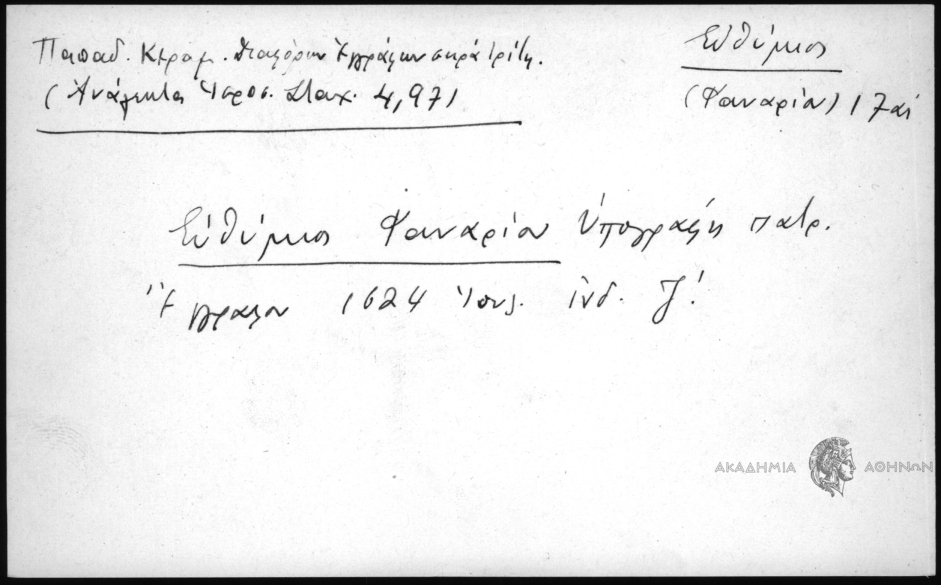 Παπαδ. Κεραμ. Διαφόρων Ἐγγράφων σειρὰ τρίτη.
(Ἀνάλεκτα Ἱεροσ. Σταχ. 4,97)
Εὐθύμιος
(Φαναρίου) 17 αἰ
Εὐθύμιος Φαναρίου Ὑπογραφὴ πατρ.
Ἐγγράφου 1624 Ἰουλ. ἰνδ. Ζ΄.
ΑΚΑΔΗΜΙΑ ΑΘΗΝΩΝ